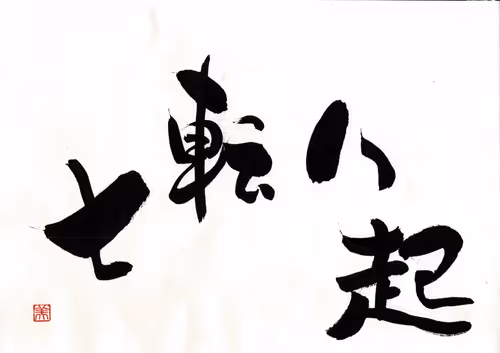 七転八起
美